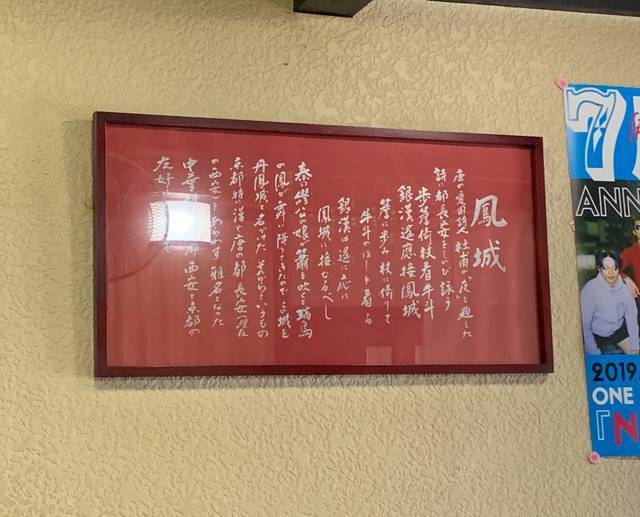 鳳城
唐の愛国詩人 杜甫が「夜」と題した
詩に都長安をしのび詠う
歩蟾倚杖看牛斗
銀漢遥應接鳳城
簷に歩み杖に倚りて
牛斗のほしを看る
銀漢は遥に応に
鳳城に接なるべし
秦の穆公の娘が簫を吹くと瑞鳥
の鳳が舞い降りてきたので この城を
丹鳳城と名がた それからというもの
京都 特に漢や唐の都 長安(現在
の西安)をあらわす 雅名となった
中華 都 西安と京都の
友好
7
ANN
2019
ONE
『N